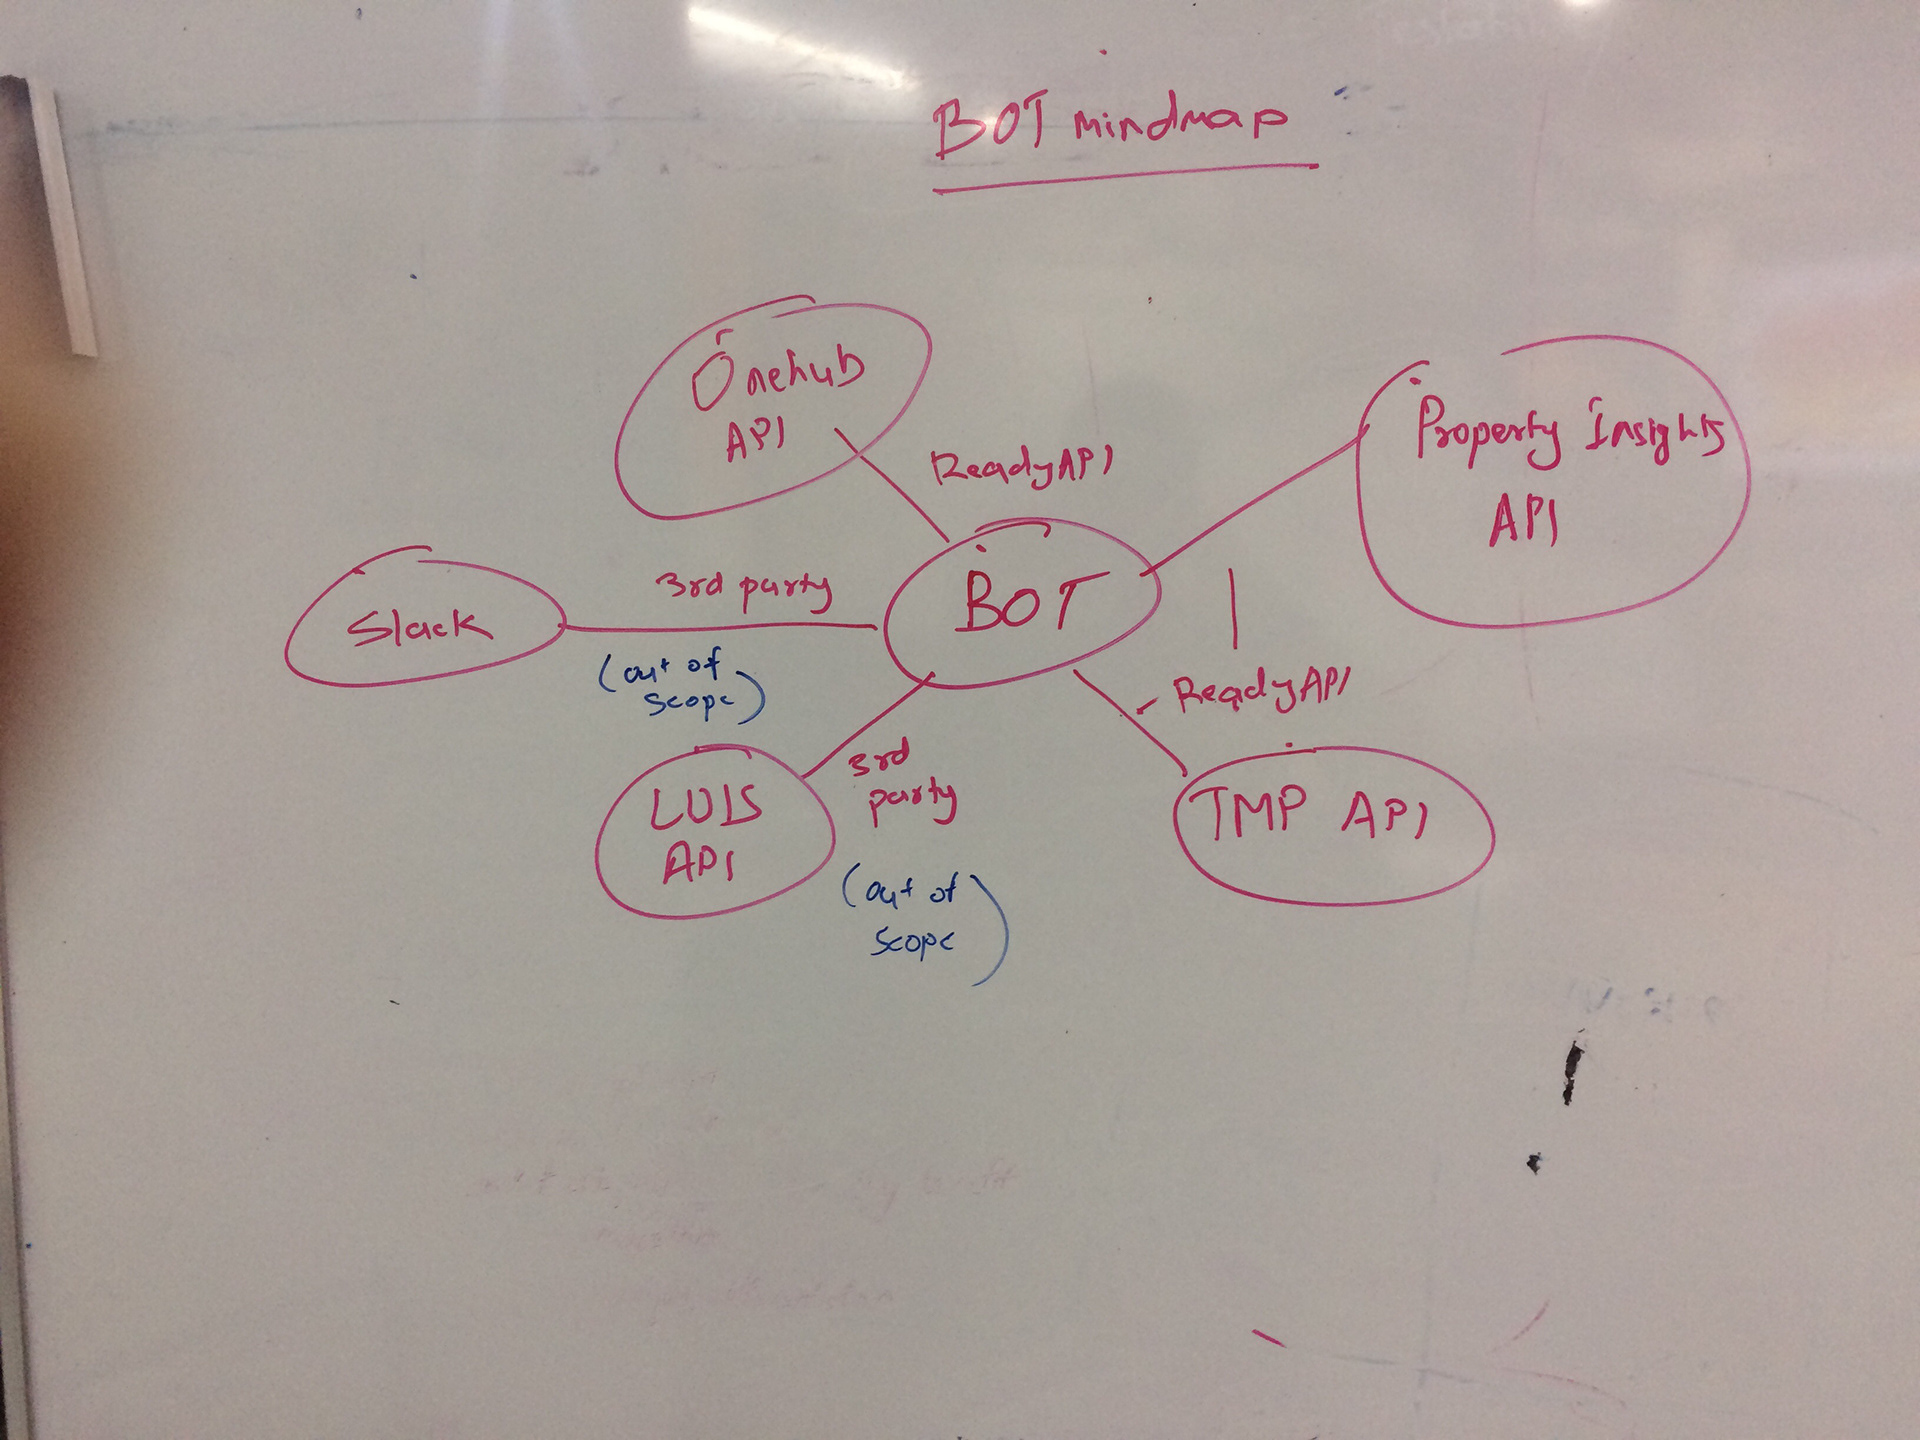 BOT mindmap
Onehub
API
ReadyAPI
Property Insights
API
3rd party
BOT
Slack
(out of
scope)
ReadyAPI
3rd
party
LUIS
API
TMP API
(out of
scope)